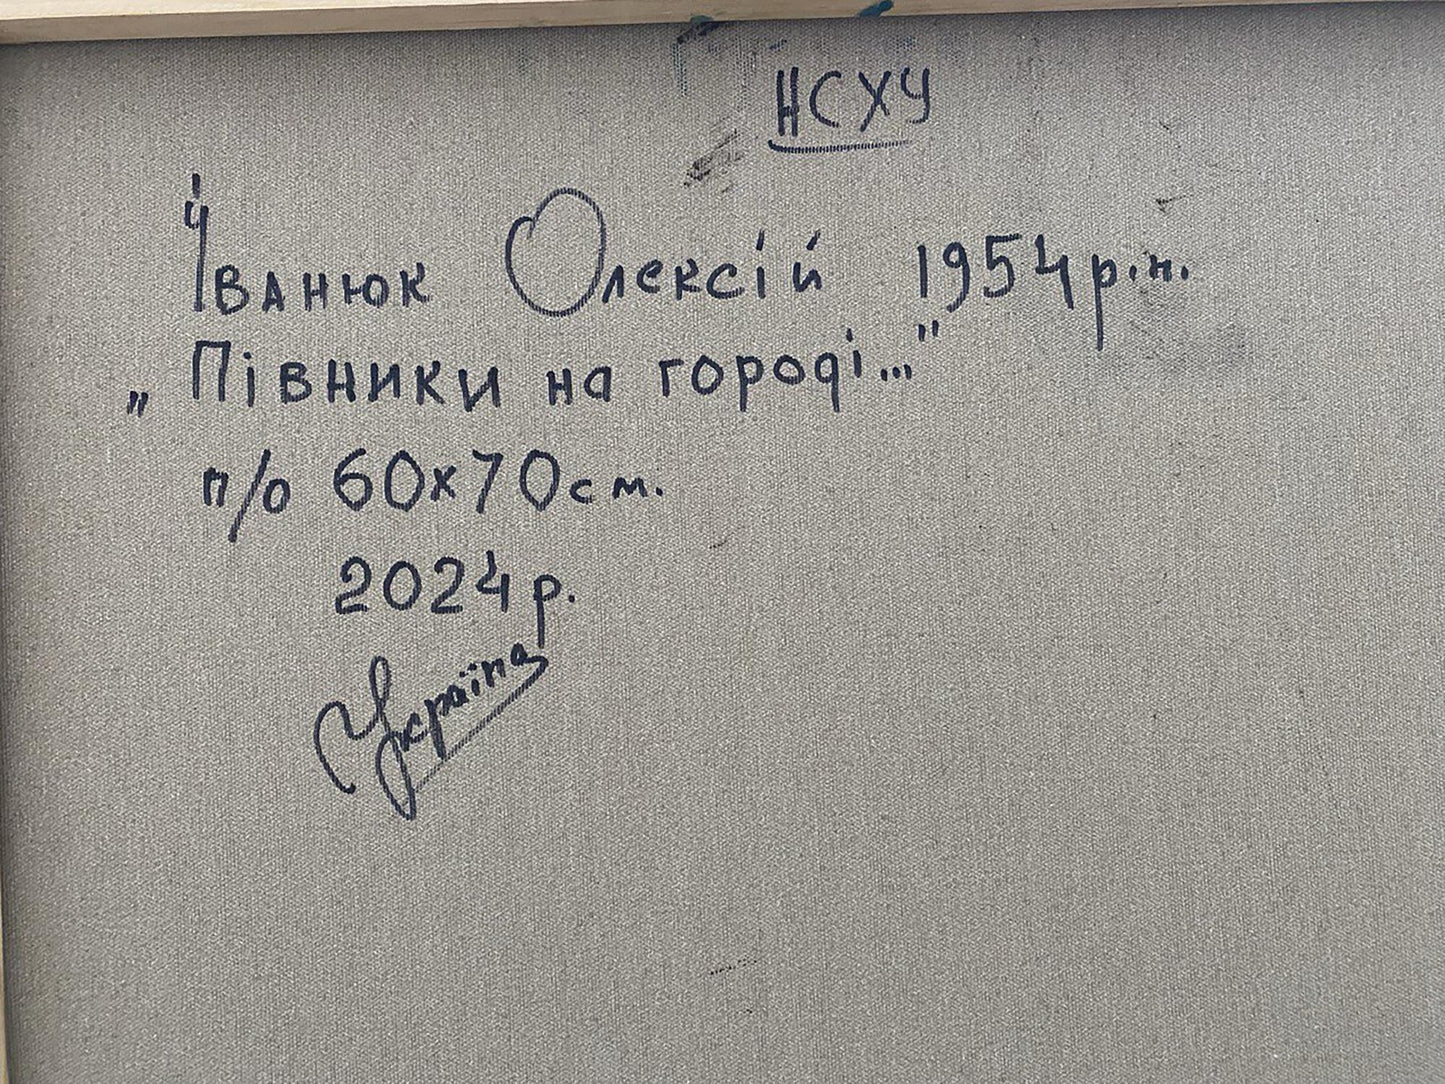 НСХУ
Іванюк Олексій 1954 р.н.
„Півники на городі..."
п/о 60х70см.
2024 р.
Україна